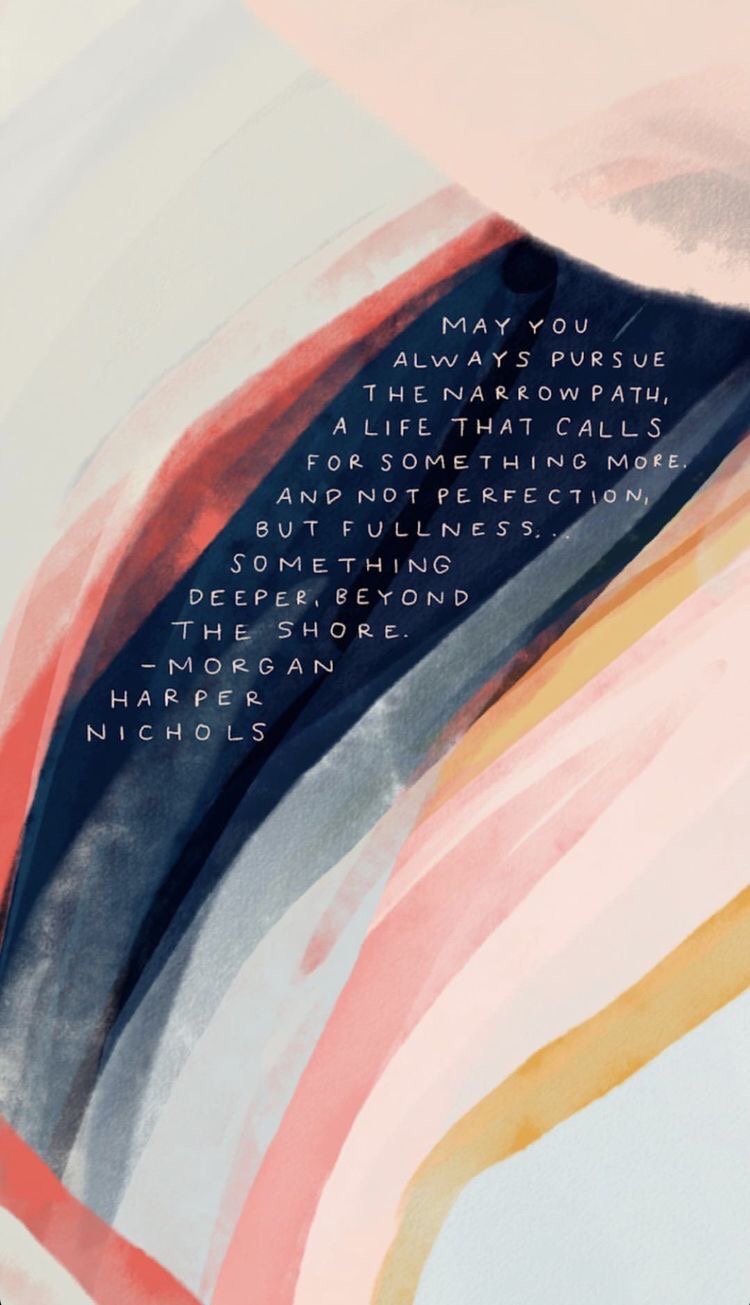 MAY YOU
ALWAYS PURSUE
THE NARROW PATH,
A LIFE THAT CALLS
FOR SOMETHING MORE.
AND NOT PERFECTION,
BUT FULLNESS...
SOMETHING
DEEPER, BEYOND
THE SHORE.
-MORGAN
HARPER
NICHOLS